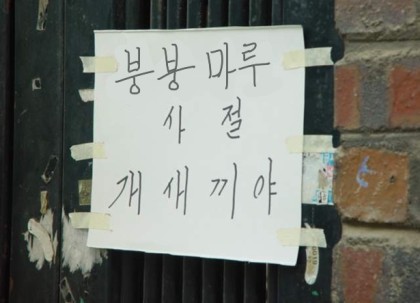 붕붕마루
사절
개새끼야